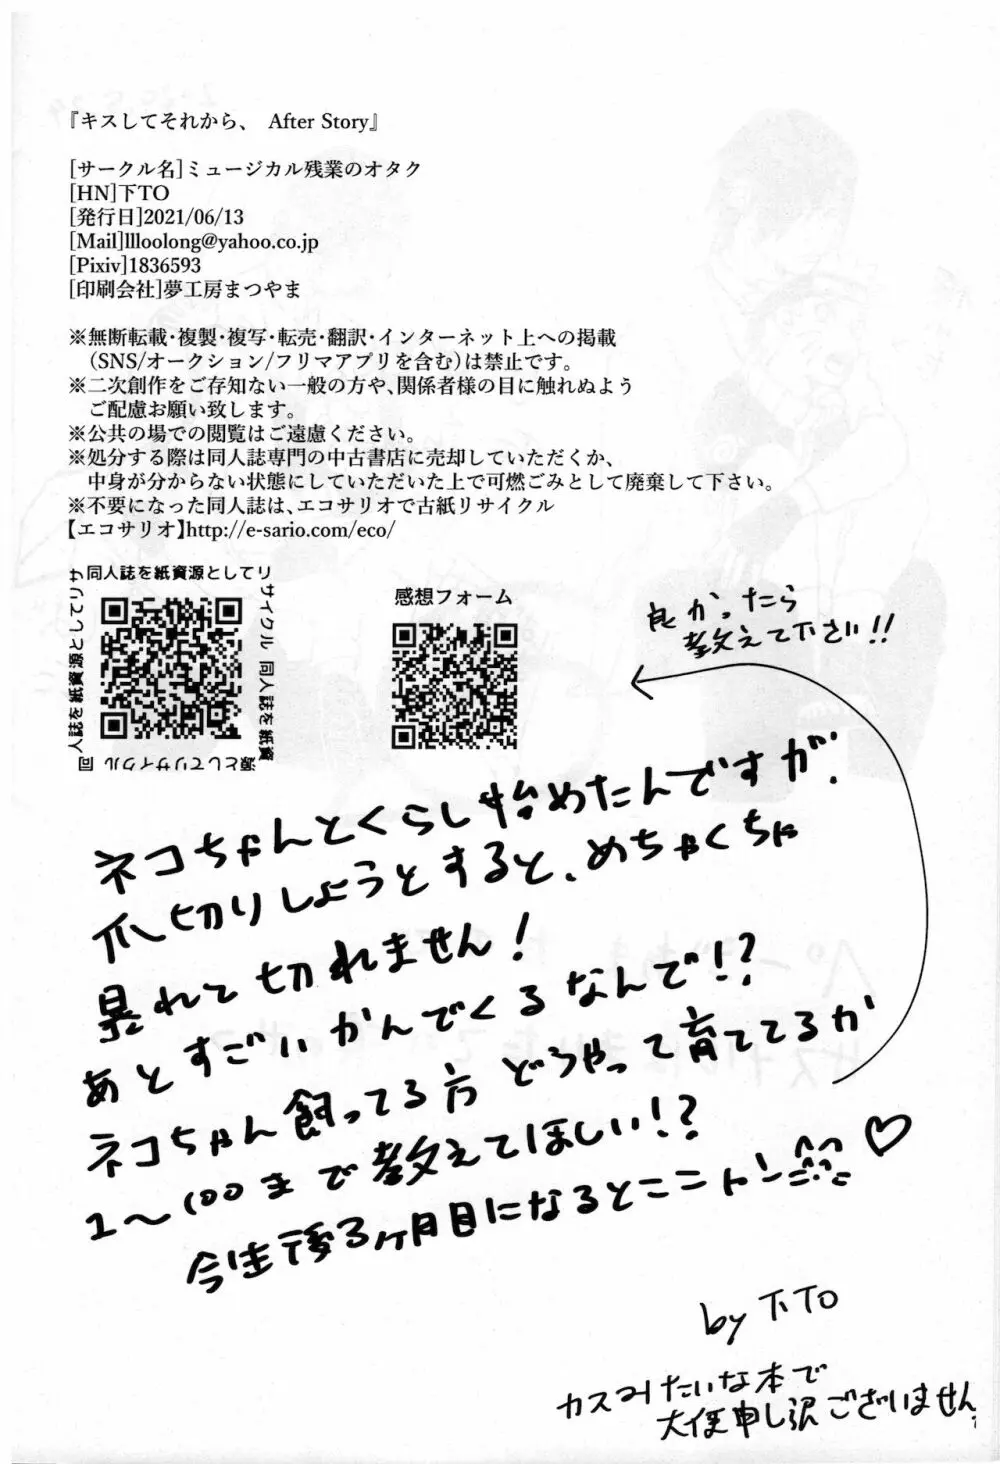 『キスしてそれから、 After Story』
[サークル名]ミュージカル残業のオタク
[HN]下TO
[発行日]2021/06/13
[Mail]llloolong@yahoo.co.jp
[Pixiv]1836593
[印刷会社]夢工房まつやま
※無断転載・複製・複写・転売・翻訳・インターネット上への掲載
(SNS/オークション/フリマアプリを含む)は禁止です。
※二次創作をご存知ない一般の方や、関係者様の目に触れぬよう
ご配慮お願い致します。
※公共の場での閲覧はご遠慮ください。
※処分する際は同人誌専門の中古書店に売却していただくか、
中身が分からない状態にしていただいた上で可燃ごみとして廃棄して下さい。
※不要になった同人誌は、エコサリオで古紙リサイクル
【エコサリオ】http://e-sario.com/eco/
同人誌を紙資源としてリ
サイクル 同人誌を紙資
源としてリサイクル 同
人誌を紙資源としてリサ
感想フォーム
良かったら
教えて下さい!!
ネコちゃんとくらし始めたんですが、
爪切りしようとすると、めちゃくちゃ
暴れて切れません!
あとすごいかんでくるなんで!?
ネコちゃん飼ってる方どうやって育ててるか
1〜100まで教えてほしい!?
今生後3ヶ月目になるとこニャン♡
by 下TO
カスみたいな本で
大変申し訳ございません